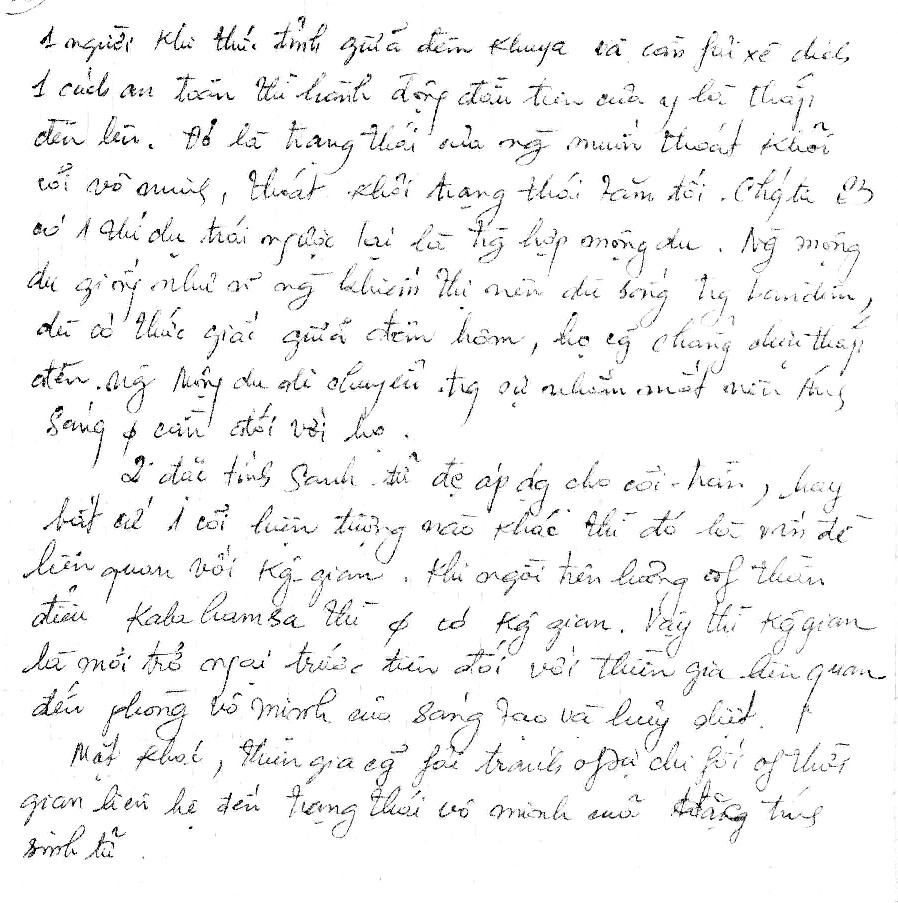 1 người khi thức tỉnh giữa đêm khuya và cần fải xê dịch
1 cách an toàn thì hành động đầu tiên của y là thắp
đèn lên. Đó là trạng thái của ng̃ muốn thoát khỏi
cõi vô minh, thoát khỏi trạng thái tăm tối. Chg ta
có 1 thí dụ trái ngược lại là tg̃ hợp mộng du. Ng̃ mộng
du giống như ng̃ khiếm thị nên dù sống tg
dù có thức giấc giữa đêm hôm, họ cg̃ chẳng thắp
đèn. Ng̃ mộng du di chuyển tg sự nhắm mắt nên ánh
sáng φ cần đối với họ.
2 đặc tính sanh tử áp dg cho cõi trần, hay
bất cứ 1 cõi hiện tượng nào khác thì đó là vấn đề
liên quan với kg gian. Khi ngồi trên lưng of thần
điểu Kalahamsa thì φ có kg gian. Vậy thì kg gian
là mối trở ngại trước tiên đối với thiền gia liên quan
đến phòng vô minh của sáng tạo và hủy diệt.
Mặt khác, thiền gia cg̃ fải tránh sự chi fối of thời
gian liên hệ đến trạng thái vô minh của đặc tính
sinh tử.